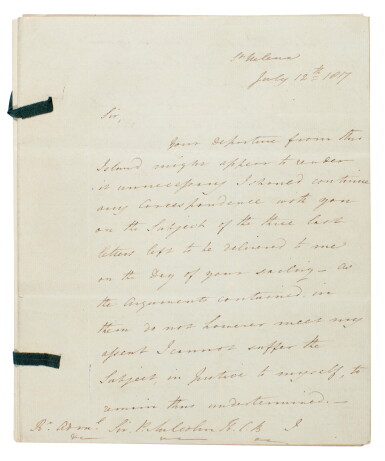 St Helena
July 12th 1817
Sir,
Your departure from this
Island might appear to render
it unnecessary I should continue
any Correspondence with you
on the Subject of the three last
letters left to be delivered to me
on the Day of your sailing - as
the Arguments contained in
them do not however meet my
assent I cannot suffer the
Subject, in Justice to myself, to
remain thus undetermined. -
Rr. Adml. Sir P. Malcolm K.C.B. I